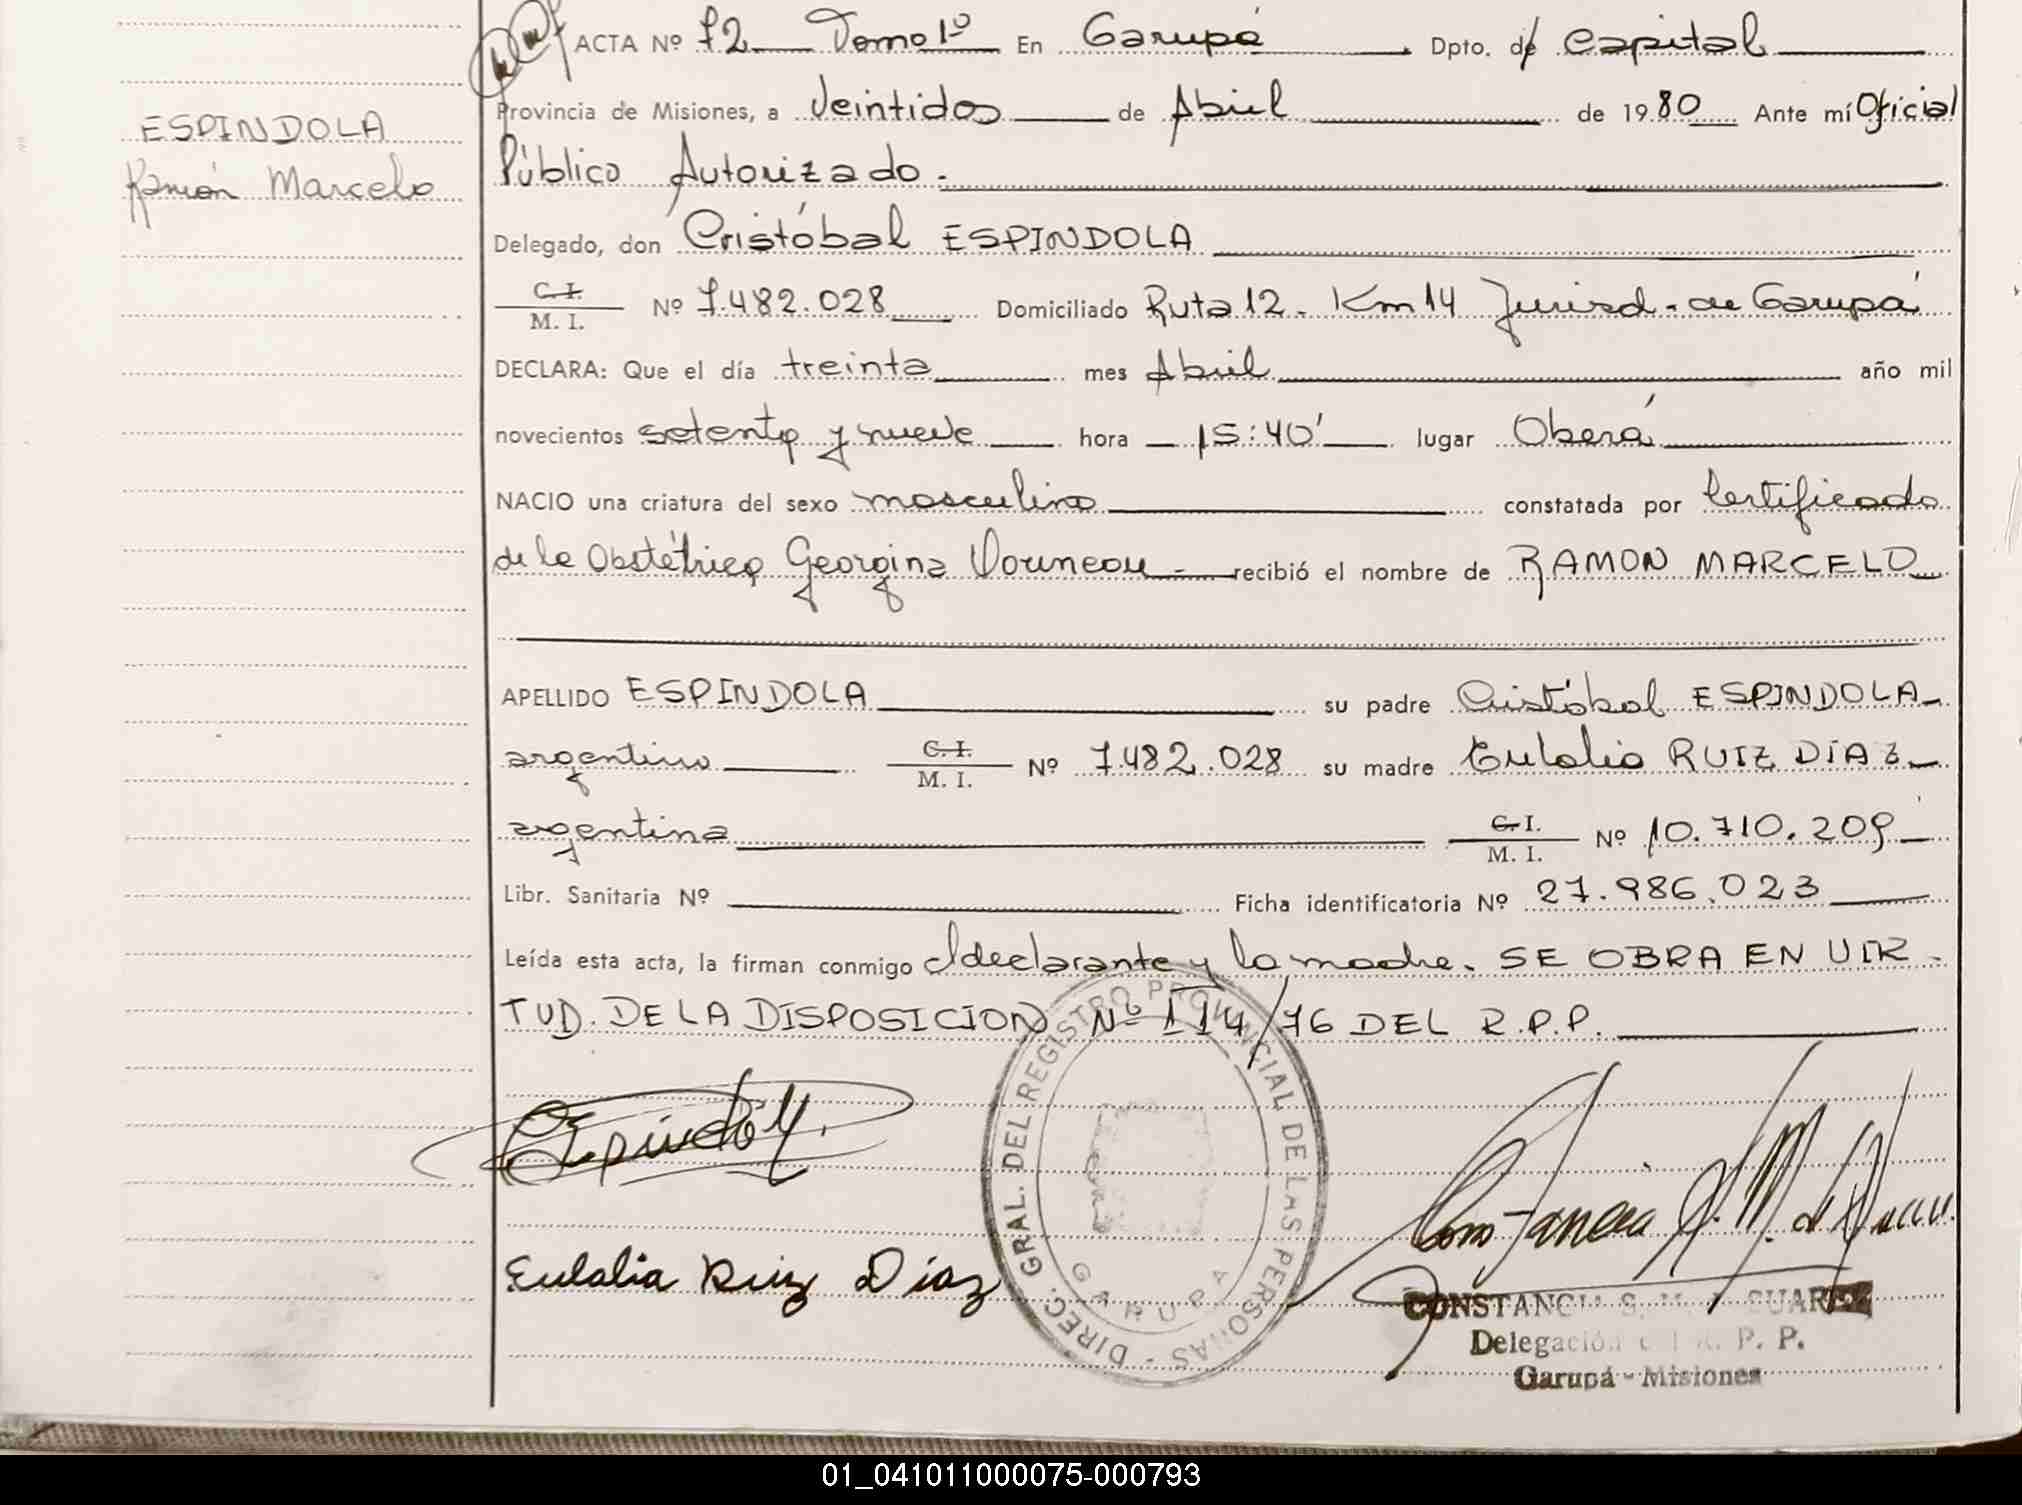 ACTA Nº 72 Tomo 1º En Garupá Dpto. de Capital
ESPINDOLA
Ramón Marcelo
Provincia de Misiones, a Veintidos de Abril de 1980 Ante mí Oficial
Público Autorizado.
Delegado, don Cristóbal ESPINDOLA
C. I. / M. I. Nº 7.482.028 Domiciliado Ruta 12 - Km 14 Jurisd. de Garupá
DECLARA: Que el día treinta mes Abril año mil
novecientos setenta y nueve hora 15:40' lugar Oberá
NACIO una criatura del sexo masculino constatada por Certificado
de la Obstétrica Georgina recibió el nombre de RAMON MARCELO
APELLIDO ESPINDOLA su padre Cristóbal ESPINDOLA
argentino C. I. / M. I. Nº 7.482.028 su madre Eulalia RUIZ DIAZ
argentina C. I. / M. I. Nº 10.710.209
Libr. Sanitaria Nº Ficha identificatoria Nº 27.986.023
Leída esta acta, la firman conmigo el declarante y la madre. SE OBRA EN VIR-
TUD. DE LA DISPOSICION Nº 114/76 DEL R.P.P.
DIREC. GRAL. DEL REGISTRO PROVINCIAL DE LAS PERSONAS -
GARUPA
Espindola
Eulalia Ruiz Diaz
Constancia S. M. de
CONSTANCIA S. M. SUAREZ
Delegación R. P. P.
Garupá - Misiones
01_041011000075-000793